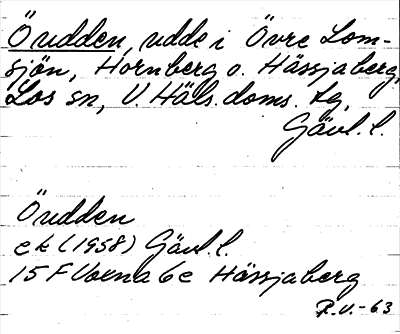 Öudden, udde i Övre Lom-
sjön, Hornberg o. Hässjaberg,
Los sn, V. Häls. doms. tg,
Gävl. l.
Öudden
ek (1958) Gävl. l.
15 F Voxna 6c Hässjaberg
R.V.-63